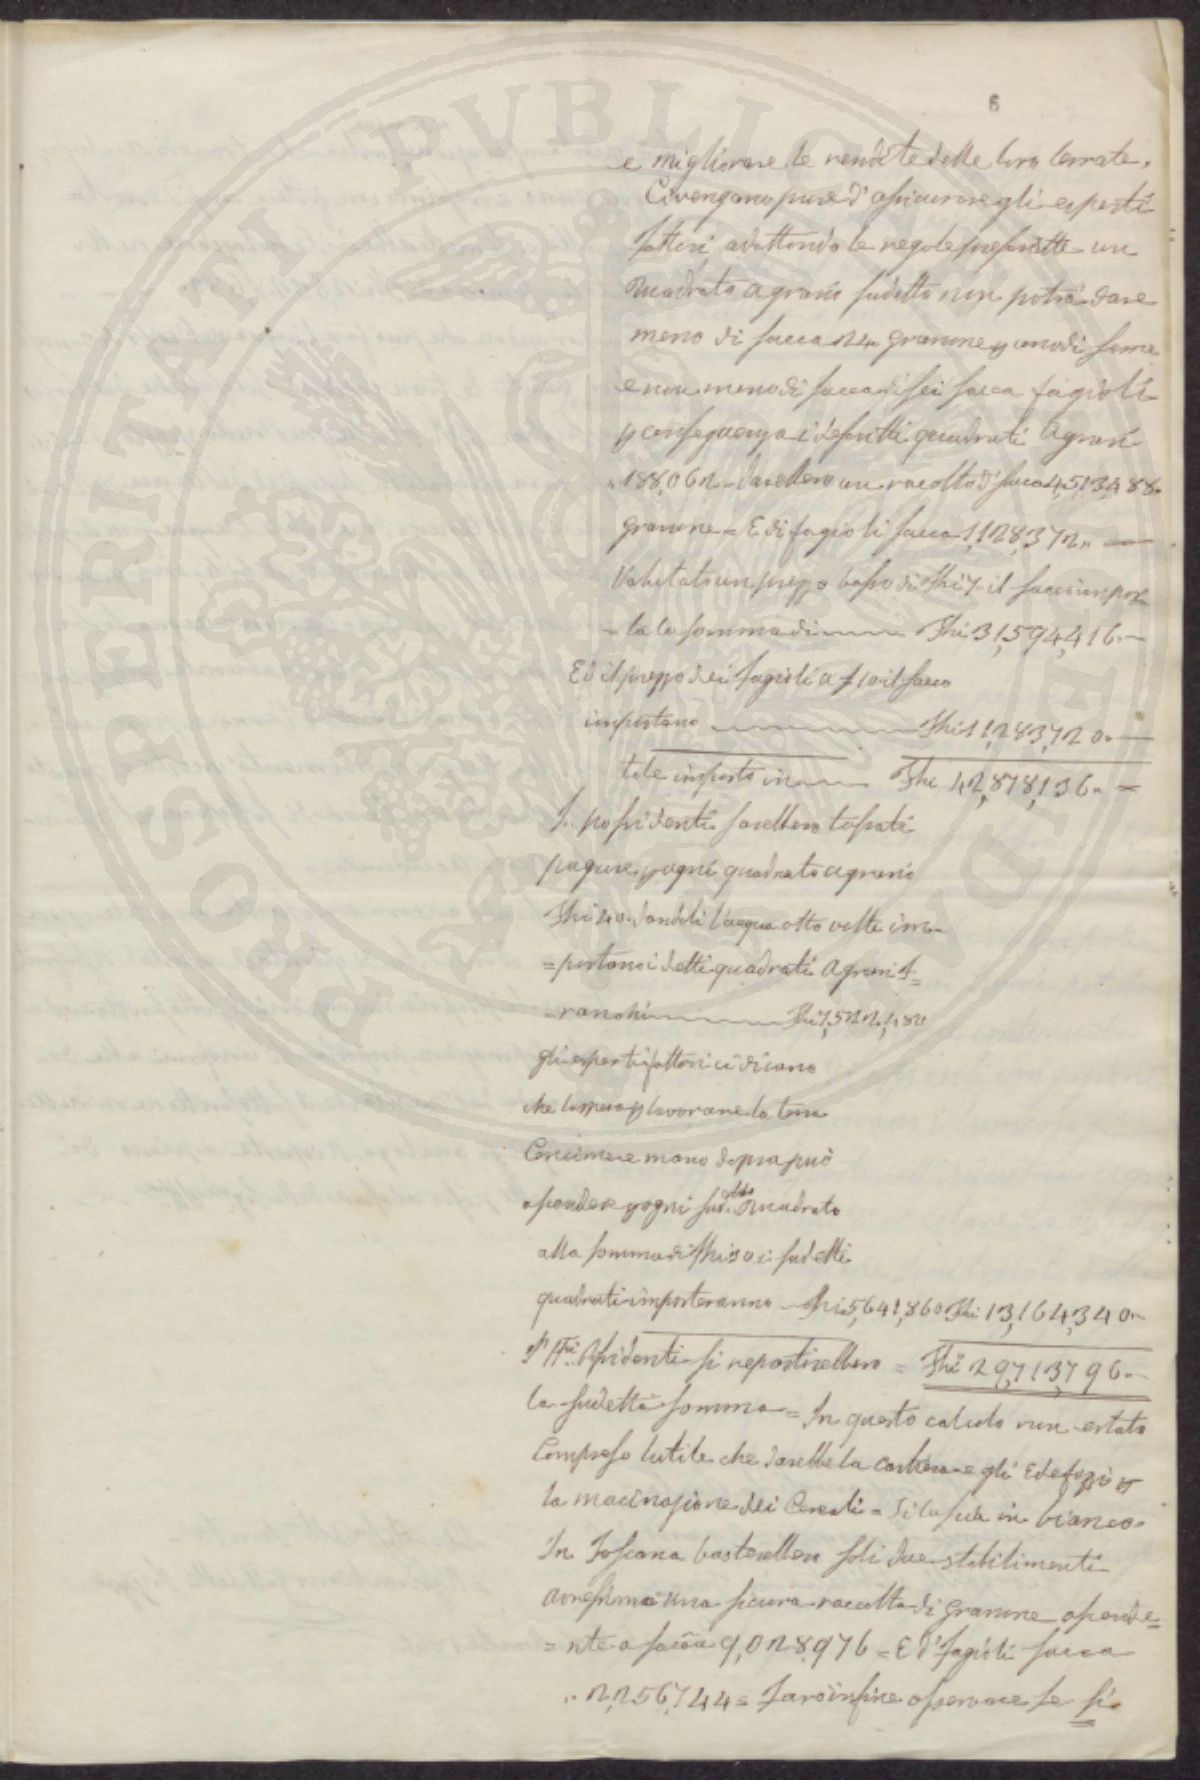 6
e migliorare le rendite delle loro terrate.
Civengono pure d'assicurare gli esperti
fattori adottando le regole prescritte un
Quadrato agrario sudetto non potrà dare
meno di sacca 24 granone p uno di seme
e non meno di sacca di sei sacca fagioli
p conseguenza i descritti quadrati Agrari
188,062 darebbero un racolto di sacca 4,513,488
granone = E di fagioli sacca 1,128,372
Valutato un prezzo basso di Fchi 7 il sacco impor
= ta la somma di Fchi 31,594,416
Ed il prezzo dei fagioli a f 10 il sacco
importano Fchi 11,283,720
tale importo in Fchi 42,878,136 =
I possidenti sarebbero tassati
pagare p ogni quadrato agrario
Fchi 40 dandoli l'acqua otto volte im
= portano i detti quadrati Agrari f=
ranchi Fchi 7,522,480
gli esperti fattori ci dicano
che la spesa p lavorare la terra
Concime e mano dopra può
ascendere p ogni sud.tto Quadrato
alla somma di Fchi 30 i sudetti
quadrati importeranno Fchi 5,641,860 Fchi 13,164,340
Possidenti si repartirebbero = Fchi 29,713,796
la sudetta somma = In questo calcolo non estato
Compreso lutile che darebbe la cartiera e gli Edefizi p
la macinazione dei Cereali = Si lascia in bianco.
In Toscana basterebbero soli due stabilimenti
avressimo una sicura raccolta di Granone ascende=
= nte a sacca 9,028,976 = E d'fagioli sacca
2,256,744 = Farò infine osservare se si